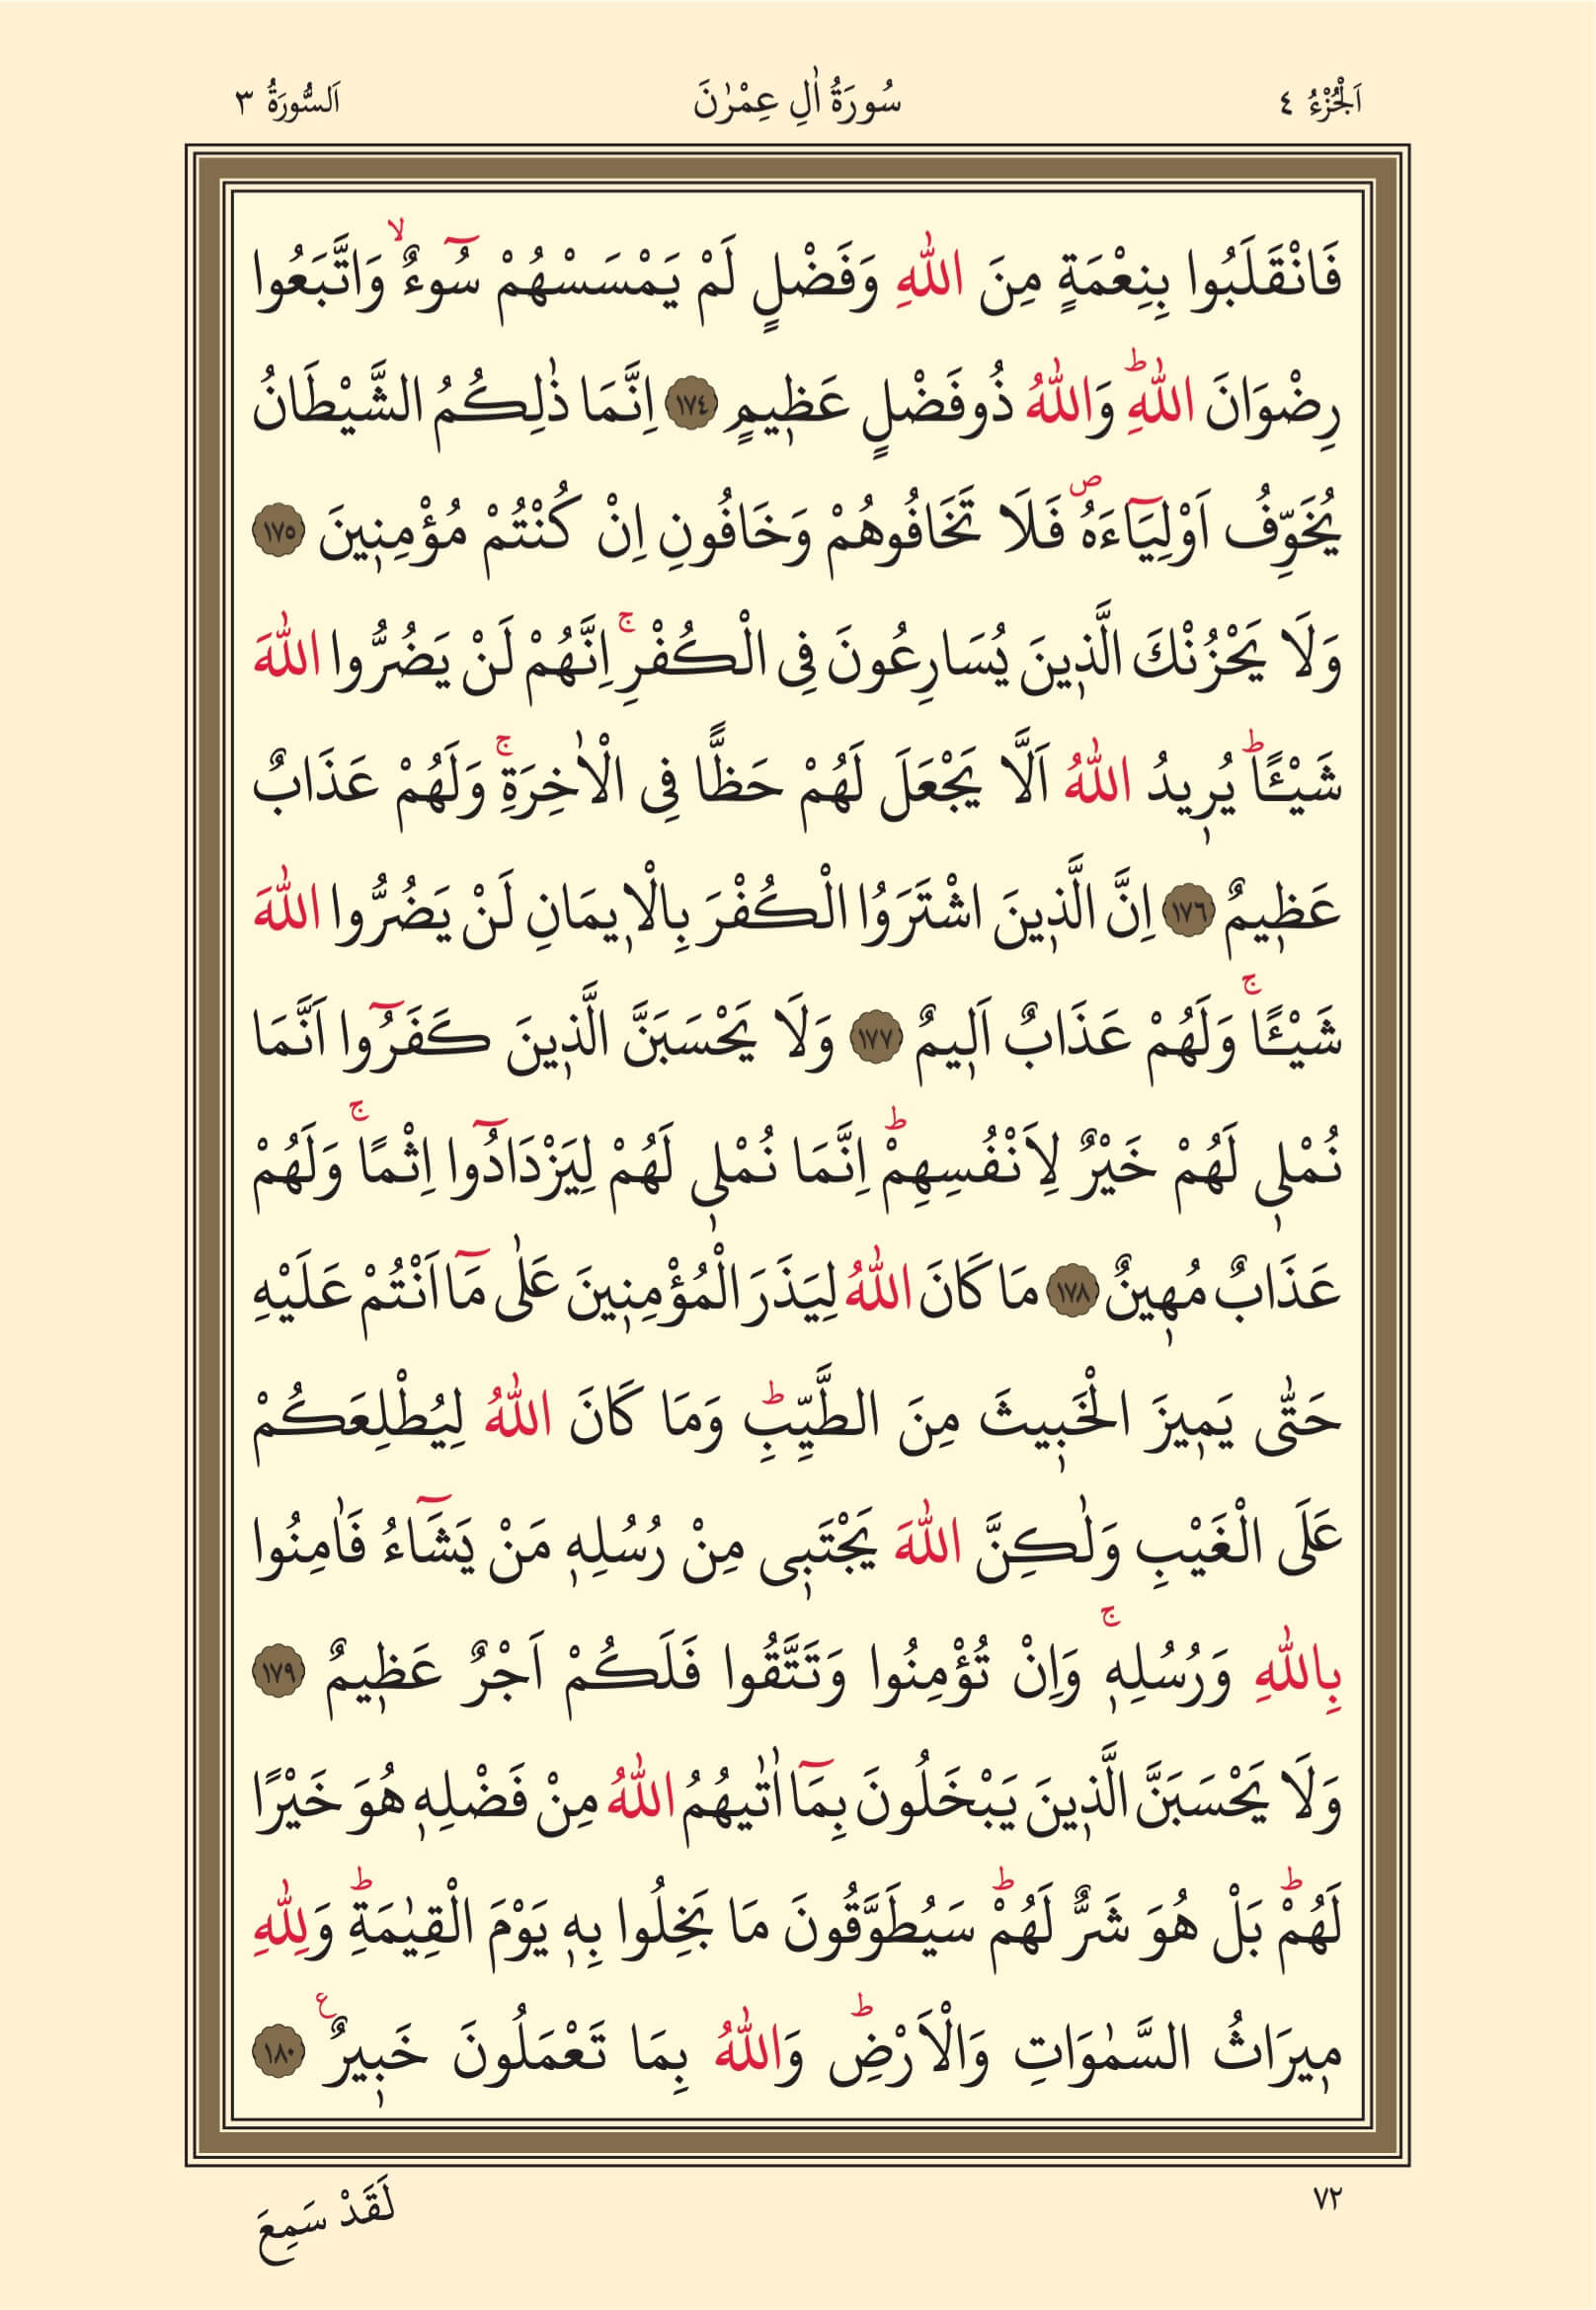 اَلْجُزْءُ ٤
سُورَةُ اٰلِ عِمْرٰنَ
اَلسُّورَةُ ٣
فَانْقَلَبُوا بِنِعْمَةٍ مِنَ اللّٰهِ وَفَضْلٍ لَمْ يَمْسَسْهُمْ سُٓوءٌۙ وَاتَّبَعُوا
رِضْوَانَ اللّٰهِۜ وَاللّٰهُ ذُوفَضْلٍ عَظ۪يمٍ ﴿١٧٤﴾ اِنَّمَا ذٰلِكُمُ الشَّيْطَانُ
يُخَوِّفُ اَوْلِيَٓاءَهُۖ فَلَا تَخَافُوهُمْ وَخَافُونِ اِنْ كُنْتُمْ مُؤْمِن۪ينَ ﴿١٧٥﴾
وَلَا يَحْزُنْكَ الَّذ۪ينَ يُسَارِعُونَ فِى الْكُفْرِۚ اِنَّهُمْ لَنْ يَضُرُّوا اللّٰهَ
شَيْـًٔاۜ يُر۪يدُ اللّٰهُ اَلَّا يَجْعَلَ لَهُمْ حَظًّا فِى الْاٰخِرَةِۚ وَلَهُمْ عَذَابٌ
عَظ۪يمٌ ﴿١٧٦﴾ اِنَّ الَّذ۪ينَ اشْتَرَوُا الْكُفْرَ بِالْا۪يمَانِ لَنْ يَضُرُّوا اللّٰهَ
شَيْـًٔاۚ وَلَهُمْ عَذَابٌ اَل۪يمٌ ﴿١٧٧﴾ وَلَا يَحْسَبَنَّ الَّذ۪ينَ كَفَرُٓوا اَنَّمَا
نُمْل۪ى لَهُمْ خَيْرٌ لِاَنْفُسِهِمْۜ اِنَّمَا نُمْل۪ى لَهُمْ لِيَزْدَادُٓوا اِثْمًاۚ وَلَهُمْ
عَذَابٌ مُه۪ينٌ ﴿١٧٨﴾ مَا كَانَ اللّٰهُ لِيَذَرَ الْمُؤْمِن۪ينَ عَلٰى مَٓا اَنْتُمْ عَلَيْهِ
حَتّٰى يَم۪يزَ الْخَب۪يثَ مِنَ الطَّيِّبِۜ وَمَا كَانَ اللّٰهُ لِيُطْلِعَكُمْ
عَلَى الْغَيْبِ وَلٰكِنَّ اللّٰهَ يَجْتَب۪ى مِنْ رُسُلِه۪ مَنْ يَشَٓاءُ فَاٰمِنُوا
بِاللّٰهِ وَرُسُلِه۪ۚ وَاِنْ تُؤْمِنُوا وَتَتَّقُوا فَلَكُمْ اَجْرٌ عَظ۪يمٌ ﴿١٧٩﴾
وَلَا يَحْسَبَنَّ الَّذ۪ينَ يَبْخَلُونَ بِمَٓا اٰتٰيهُمُ اللّٰهُ مِنْ فَضْلِه۪ هُوَ خَيْرًا
لَهُمْۜ بَلْ هُوَ شَرٌّ لَهُمْۜ سَيُطَوَّقُونَ مَا بَخِلُوا بِه۪ يَوْمَ الْقِيٰمَةِۜ وَلِلّٰهِ
م۪يرَاثُ السَّمٰوَاتِ وَالْاَرْضِۜ وَاللّٰهُ بِمَا تَعْمَلُونَ خَب۪يرٌ۟ ﴿١٨٠﴾
٧٢
لَقَدْ سَمِعَ